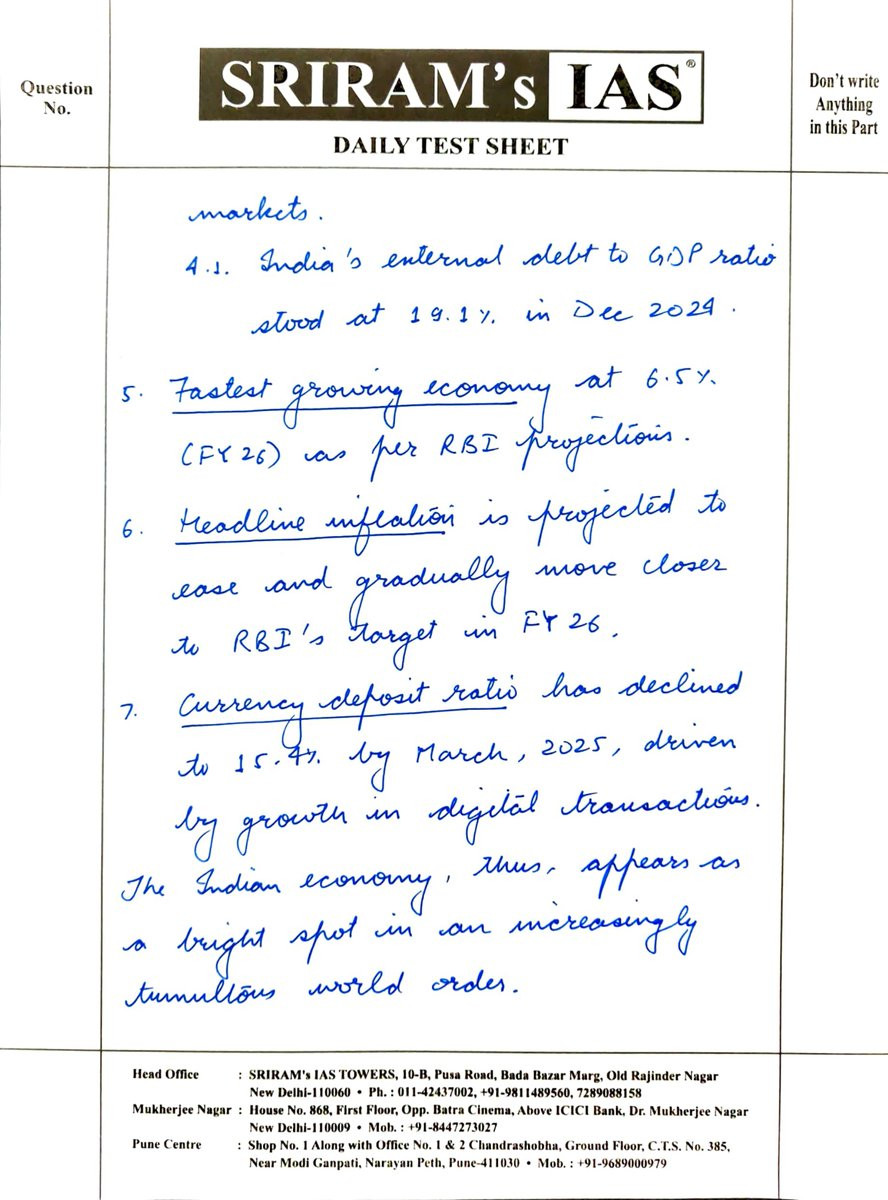 Question
No.
SRIRAM's IAS®
DAILY TEST SHEET
Don't write
Anything
in this Part
markets.
4.1. India's external debt to GDP ratio
stood at 19.1% in Dec 2024.
5. Fastest growing economy at 6.5%
(FY 26) as per RBI projections.
6. Headline inflation is projected to
ease and gradually move closer
to RBI's target in FY 26.
7. Currency deposit ratio has declined
to 15.4% by March, 2025, driven
by growth in digital transactions.
The Indian economy, thus, appears as
a bright spot in an increasingly
tumultous world order.
Head Office : SRIRAM's IAS TOWERS, 10-B, Pusa Road, Bada Bazar Marg, Old Rajinder Nagar
New Delhi-110060 • Ph. : 011-42437002, +91-9811489560, 7289088158
Mukherjee Nagar : House No. 868, First Floor, Opp. Batra Cinema, Above ICICI Bank, Dr. Mukherjee Nagar
New Delhi-110009 • Mob. : +91-8447273027
Pune Centre : Shop No. 1 Along with Office No. 1 & 2 Chandrashobha, Ground Floor, C.T.S. No. 385,
Near Modi Ganpati, Narayan Peth, Pune-411030 • Mob. : +91-9689000979